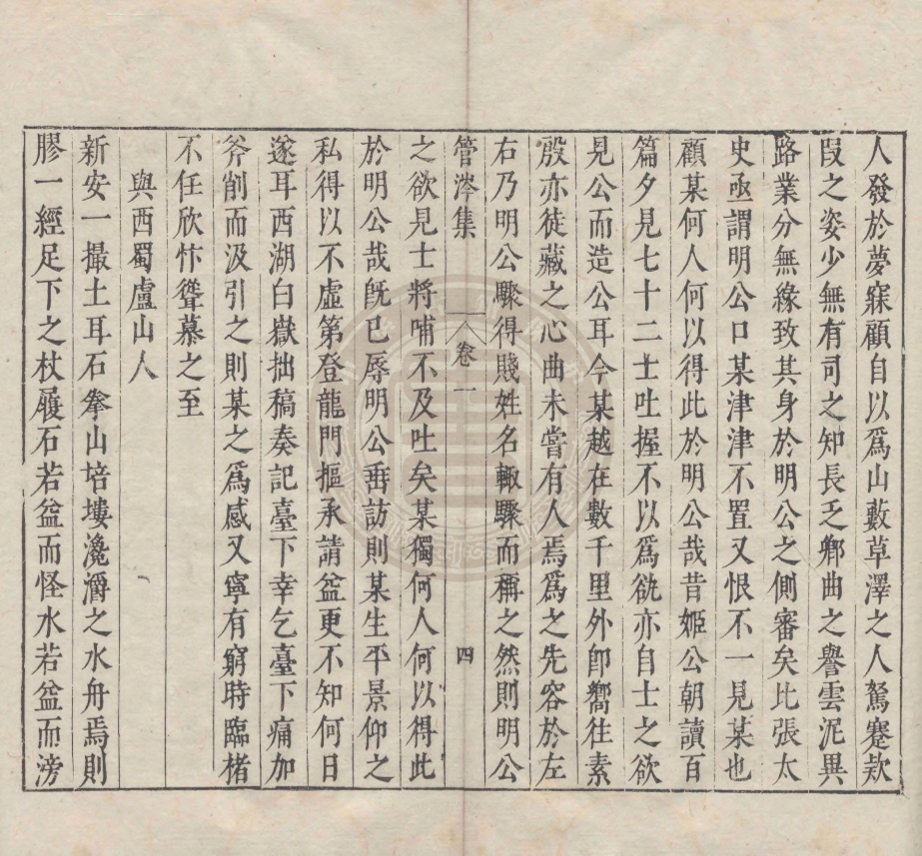 人發於夢寐顧自以爲山藪草澤之人駑蹇欵
段之姿少無有司之知長乏鄕曲之譽雲泥異
路業分無緣致其身於明公之側審矣比張太
史亟謂明公口某津津不置又恨不一見某也
顧某何人何以得此於明公哉昔姬公朝讀百
篇夕見七十二士吐握不以爲侁亦自士之欲
見公而造公耳今某越在數千里外卽嚮往素
殷亦徒藏之心曲未嘗有人焉爲之先容於左
右乃明公驟得賤姓名輙驟而稱之然則明公
管涔集
卷一
四
之欲見士將哺不及吐矣某獨何人何以得此
於明公哉旣已辱明公垂訪則某生平景仰之
私得以不虛第登龍門摳承請益更不知何日
遂耳西湖白嶽拙稿奏記臺下幸乞臺下痛加
斧削而汲引之則某之爲感又寧有窮時臨楮
不任欣忭聳慕之至
與西蜀盧山人
新安一撮土耳石拳山培塿瀺灂之水舟焉則
膠一經足下之杖履石若益而怪水若益而滂